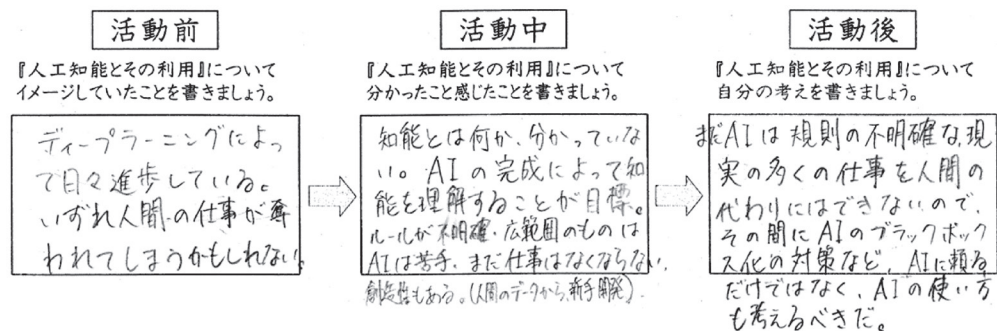 活動前
『人工知能とその利用』について
イメージしていたことを書きましょう。
ディープラーニングによっ
て日々進歩している。
いずれ人間の仕事が奪
われてしまうかもしれない。
活動中
『人工知能とその利用』について
分かったこと感じたことを書きましょう。
知能とは何か、分かっていな
い。AIの完成によって知
能を理解することが目標。
ルールが不明確・広範囲のものは
AIは苦手、まだ仕事はなくならない。
創造性もある。(人間のデータから、新手開発)
活動後
『人工知能とその利用』について
自分の考えを書きましょう。
まだAIは規則の不明確な、現
実の多くの仕事を人間の
代わりにはできないので、
その間にAIのブラックボック
ス化の対策など、AIに頼る
だけではなく、AIの使い方
も考えるべきだ。